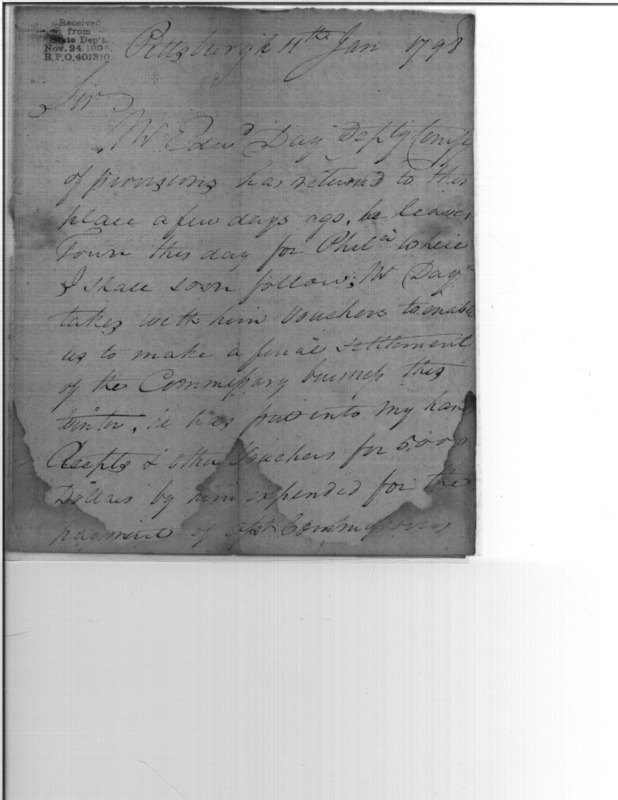 Received
from
State Dep't.
Nov. 24, 189
R.P.O. 401310
Pittsburgh 11th Jan 1798
Sir
Mr Edwd Day Depty Comss
of provisions has returned to this
place a few days ago. he leaves
Town this day for Phila where
I shall soon follow, Mr Day
takes with him Vouchers to enable
us to make a final settlement
of the Commissary business this
winter. he has put into my hand
Recepts & other Vouchers for 5,000
Dollars by him expended for the
payment of